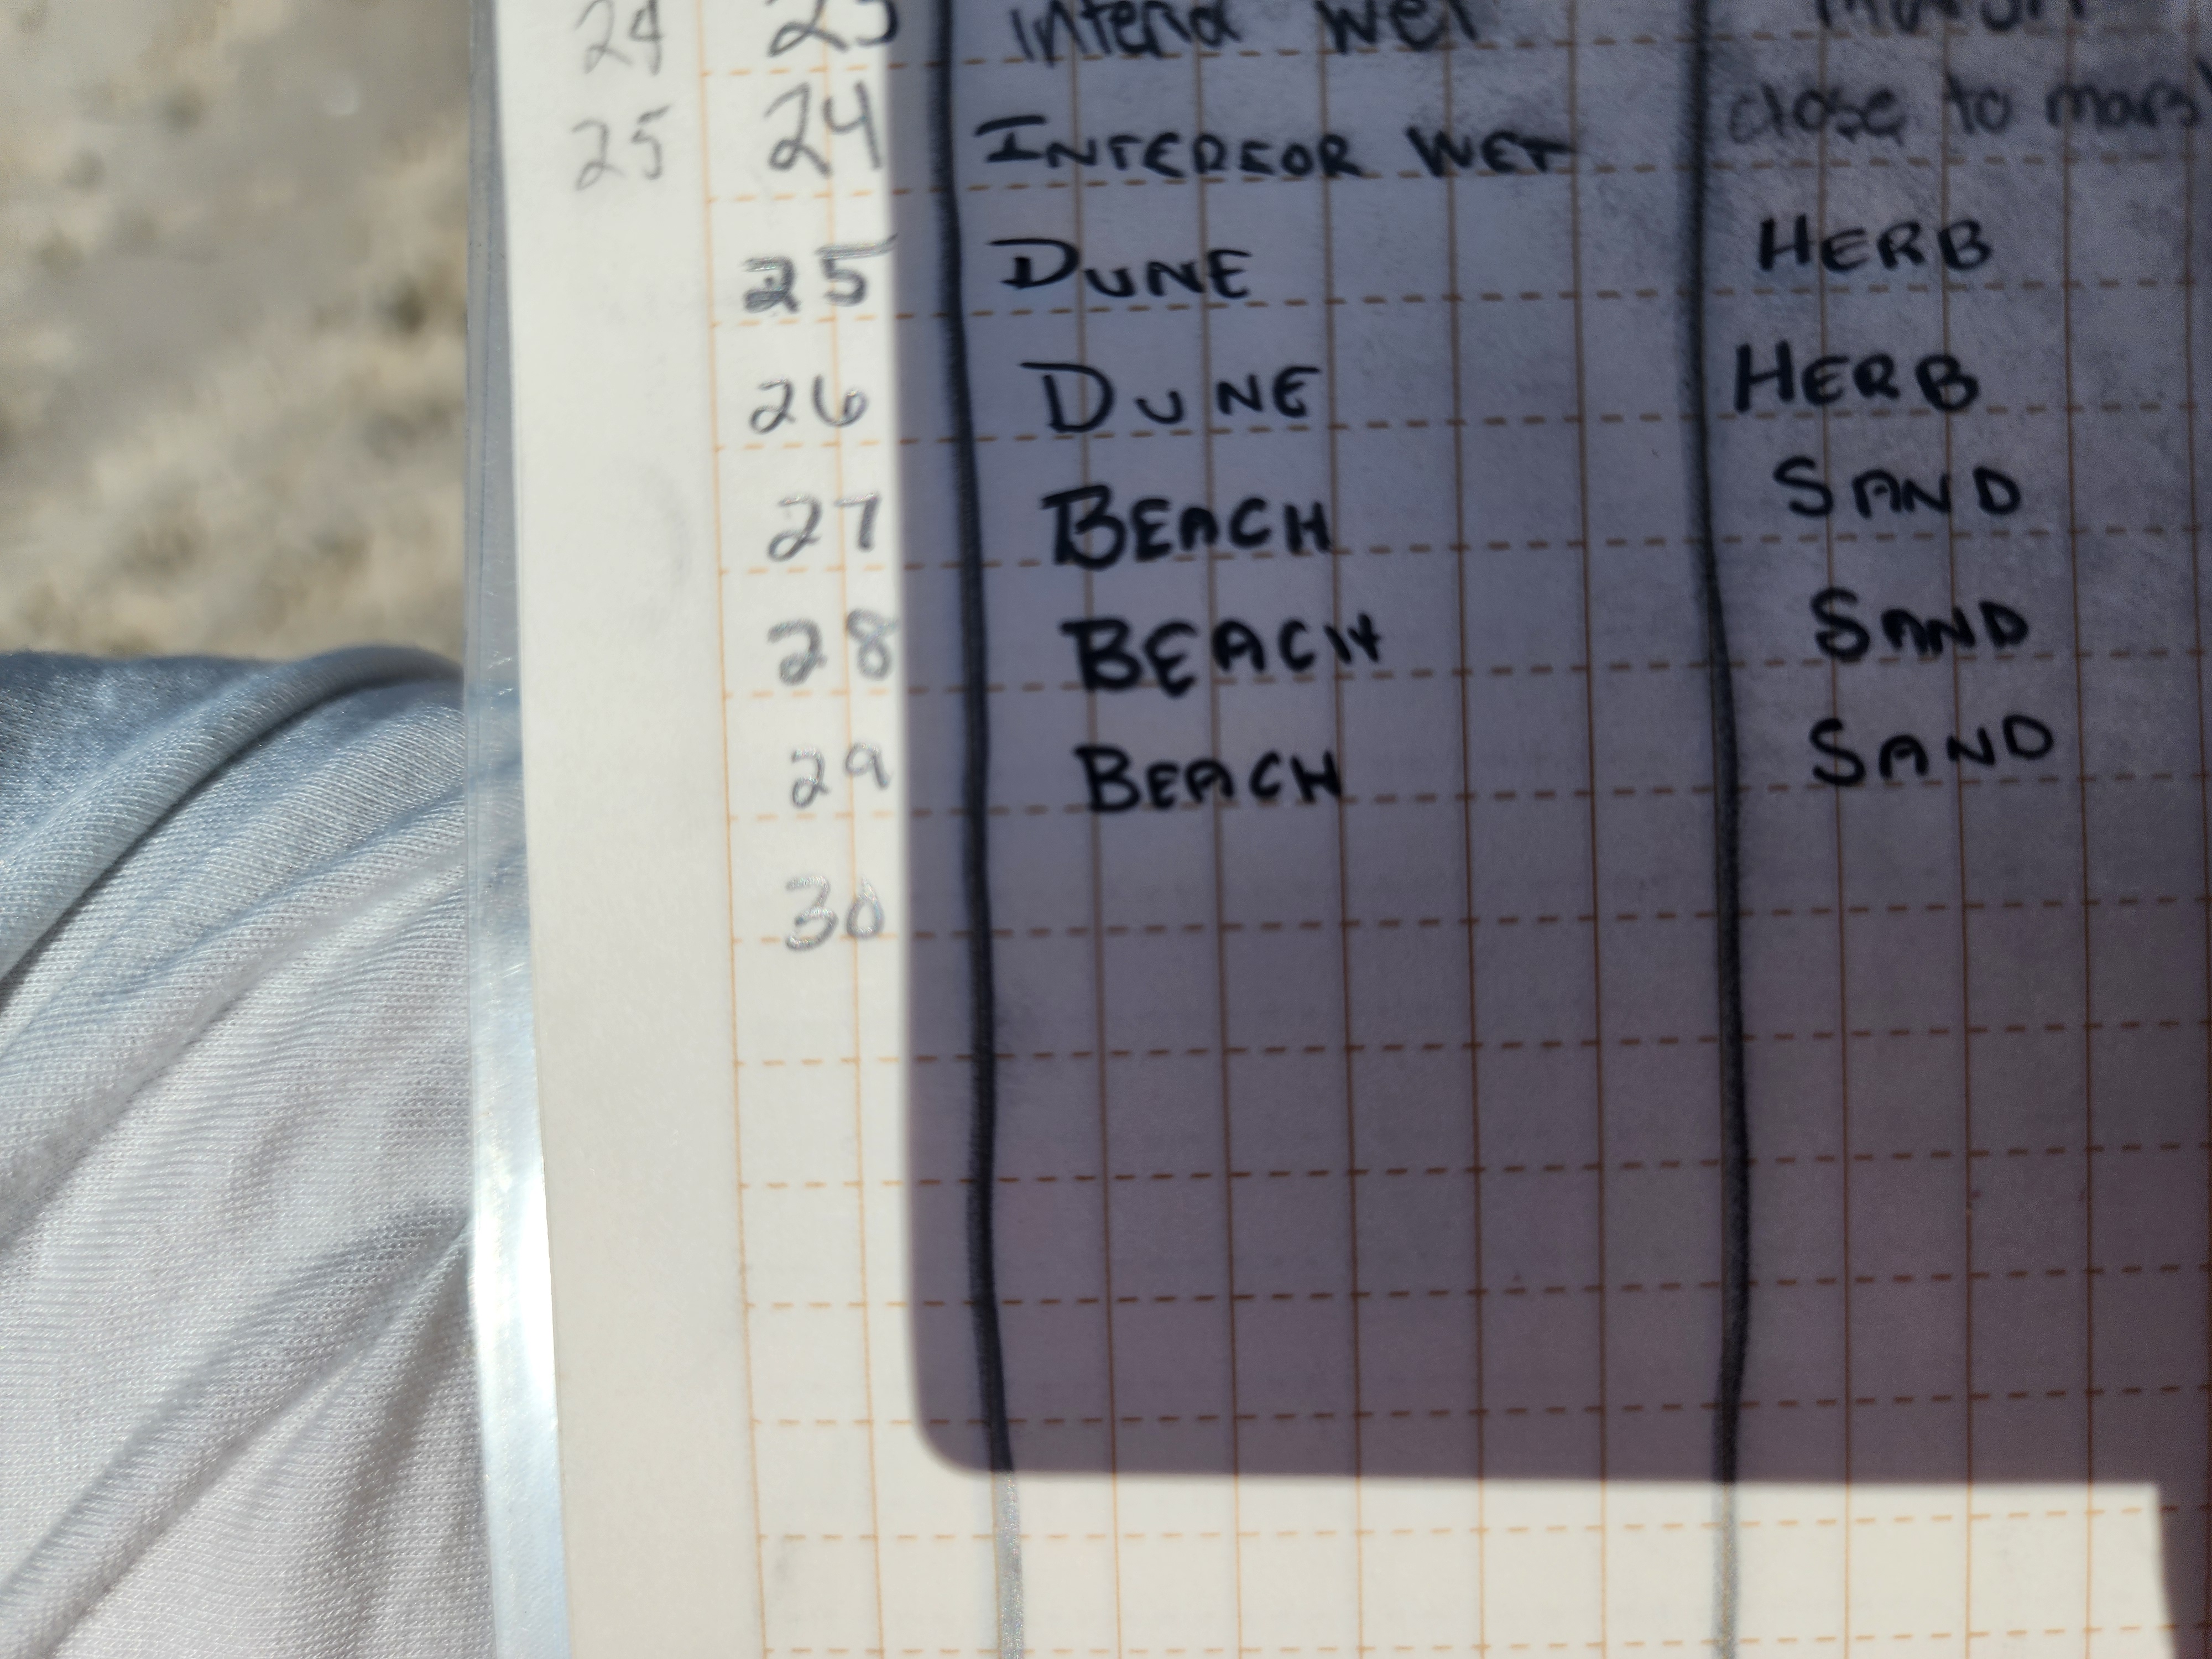 24 23 intend wet
25 24 INTEREOR WET close to mars
25 DUNE HERB
26 DUNE HERB
27 BEACH SAND
28 BEACH SAND
29 BEACH SAND
30